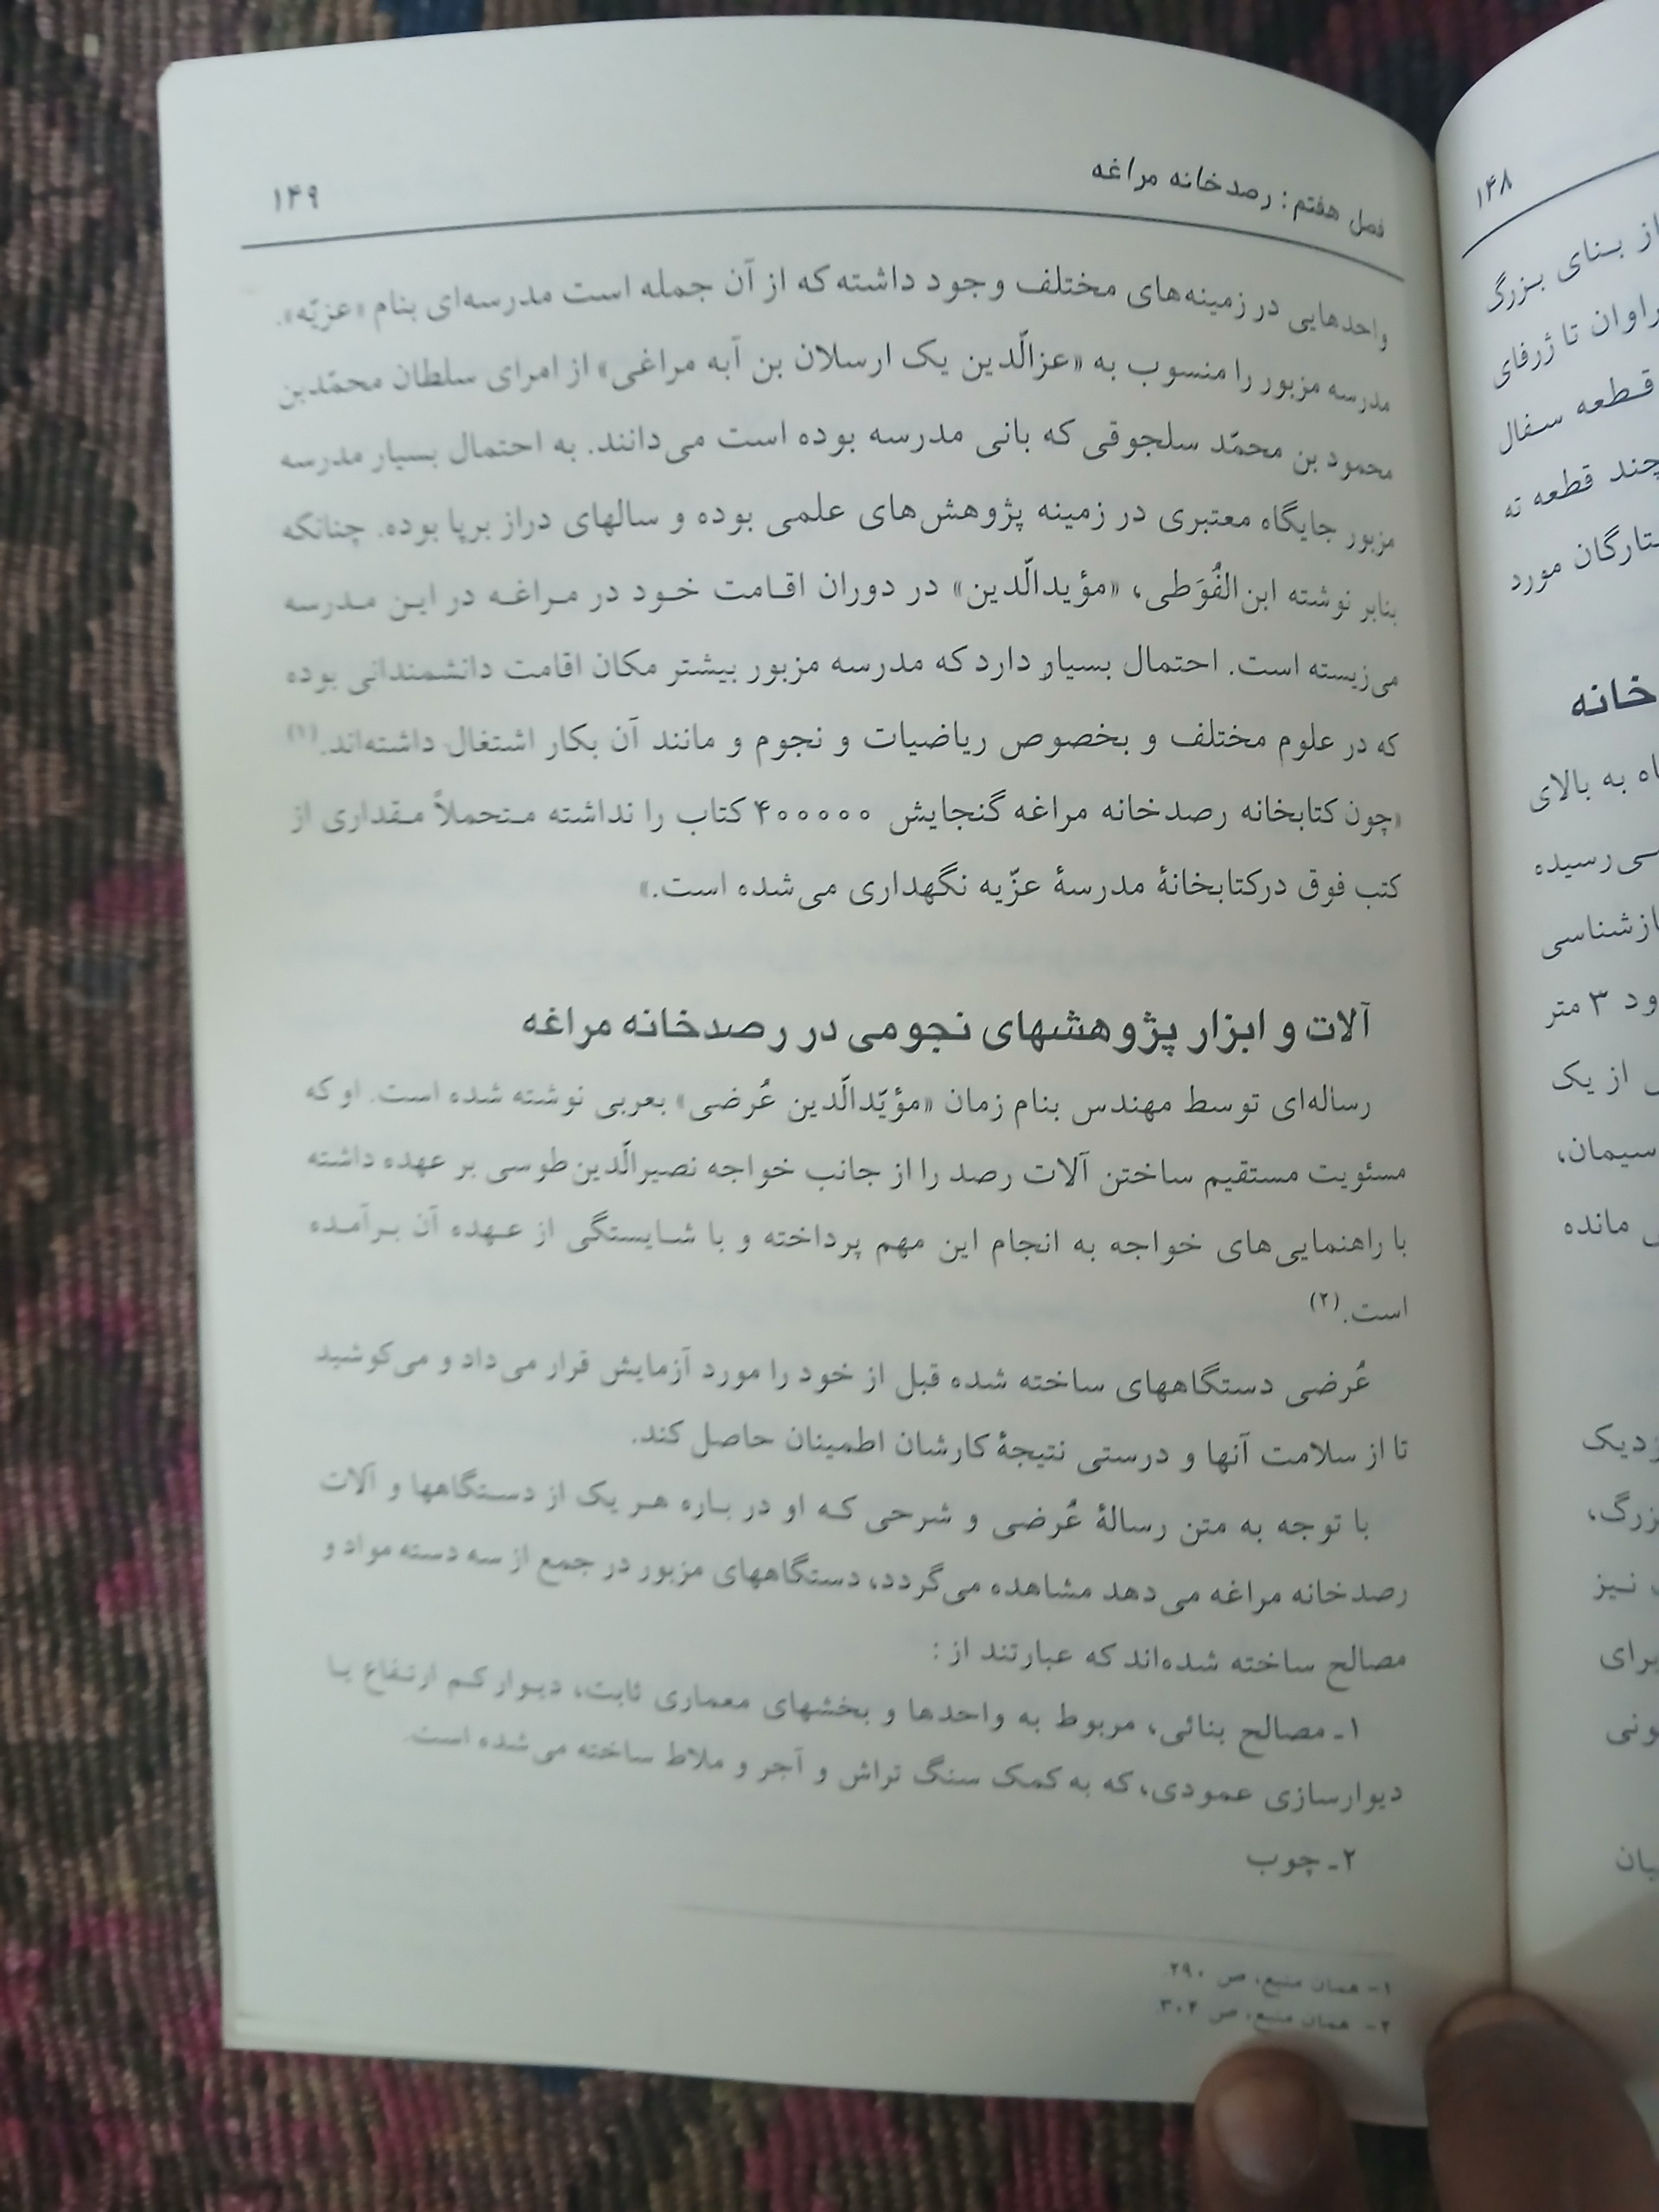 فصل هفتم: رصدخانه مراغه
۱۴۹
واحدهایی در زمینه‌های مختلف وجود داشته که از آن جمله است مدرسه‌ای بنام «عزیّه».
مدرسه مزبور را منسوب به «عزالّدین یک ارسلان بن آبه مراغی» از امرای سلطان محمّدبن
محمود بن محمّد سلجوقی که بانی مدرسه بوده است می‌دانند. به احتمال بسیار مدرسه
مزبور جایگاه معتبری در زمینه پژوهش‌های علمی بوده و سالهای دراز برپا بوده. چنانکه
بنابر نوشته ابن‌الفُوَطی، «مؤیدالّدین» در دوران اقامت خود در مراغه در این مدرسه
می‌زیسته است. احتمال بسیار دارد که مدرسه مزبور بیشتر مکان اقامت دانشمندانی بوده
که در علوم مختلف و بخصوص ریاضیات و نجوم و مانند آن بکار اشتغال داشته‌اند.(۱)
«چون کتابخانه رصدخانه مراغه گنجایش ۴۰۰۰۰۰ کتاب را نداشته متحملاً مقداری از
کتب فوق درکتابخانهٔ مدرسهٔ عزّیه نگهداری می‌شده است.»
آلات و ابزار پژوهشهای نجومی در رصدخانه مراغه
رساله‌ای توسط مهندس بنام زمان «مؤیّدالّدین عُرضی» بعربی نوشته شده است. او که
مسئویت مستقیم ساختن آلات رصد را از جانب خواجه نصیرالّدین‌طوسی بر عهده داشته
با راهنمایی‌های خواجه به انجام این مهم پرداخته و با شایستگی از عهده آن برآمده
است.(۲)
عُرضی دستگاههای ساخته شده قبل از خود را مورد آزمایش قرار می‌داد و می‌کوشید
تا از سلامت آنها و درستی نتیجهٔ کارشان اطمینان حاصل کند.
با توجه به متن رسالهٔ عُرضی و شرحی که او در باره هر یک از دستگاهها و آلات
رصدخانه مراغه می‌دهد مشاهده می‌گردد، دستگاههای مزبور در جمع از سه دسته مواد و
مصالح ساخته شده‌اند که عبارتند از:
۱ـ مصالح بنائی، مربوط به واحدها و بخشهای معماری ثابت، دیوار کم ارتفاع یا
دیوارسازی عمودی، که به کمک سنگ تراش و آجر و ملاط ساخته می‌شده است.
۲ـ چوب
۱- همان منبع، ص ۲۹۰
۲- همان منبع، ص ۳۰۲
۱۴۸
از بنای بزرگ
تا ژرفای
قطعه سفال
چند قطعه ته
مورد
خانه
به بالای
رسیده
۳ متر
از یک
سیمان،
مانده
نیز